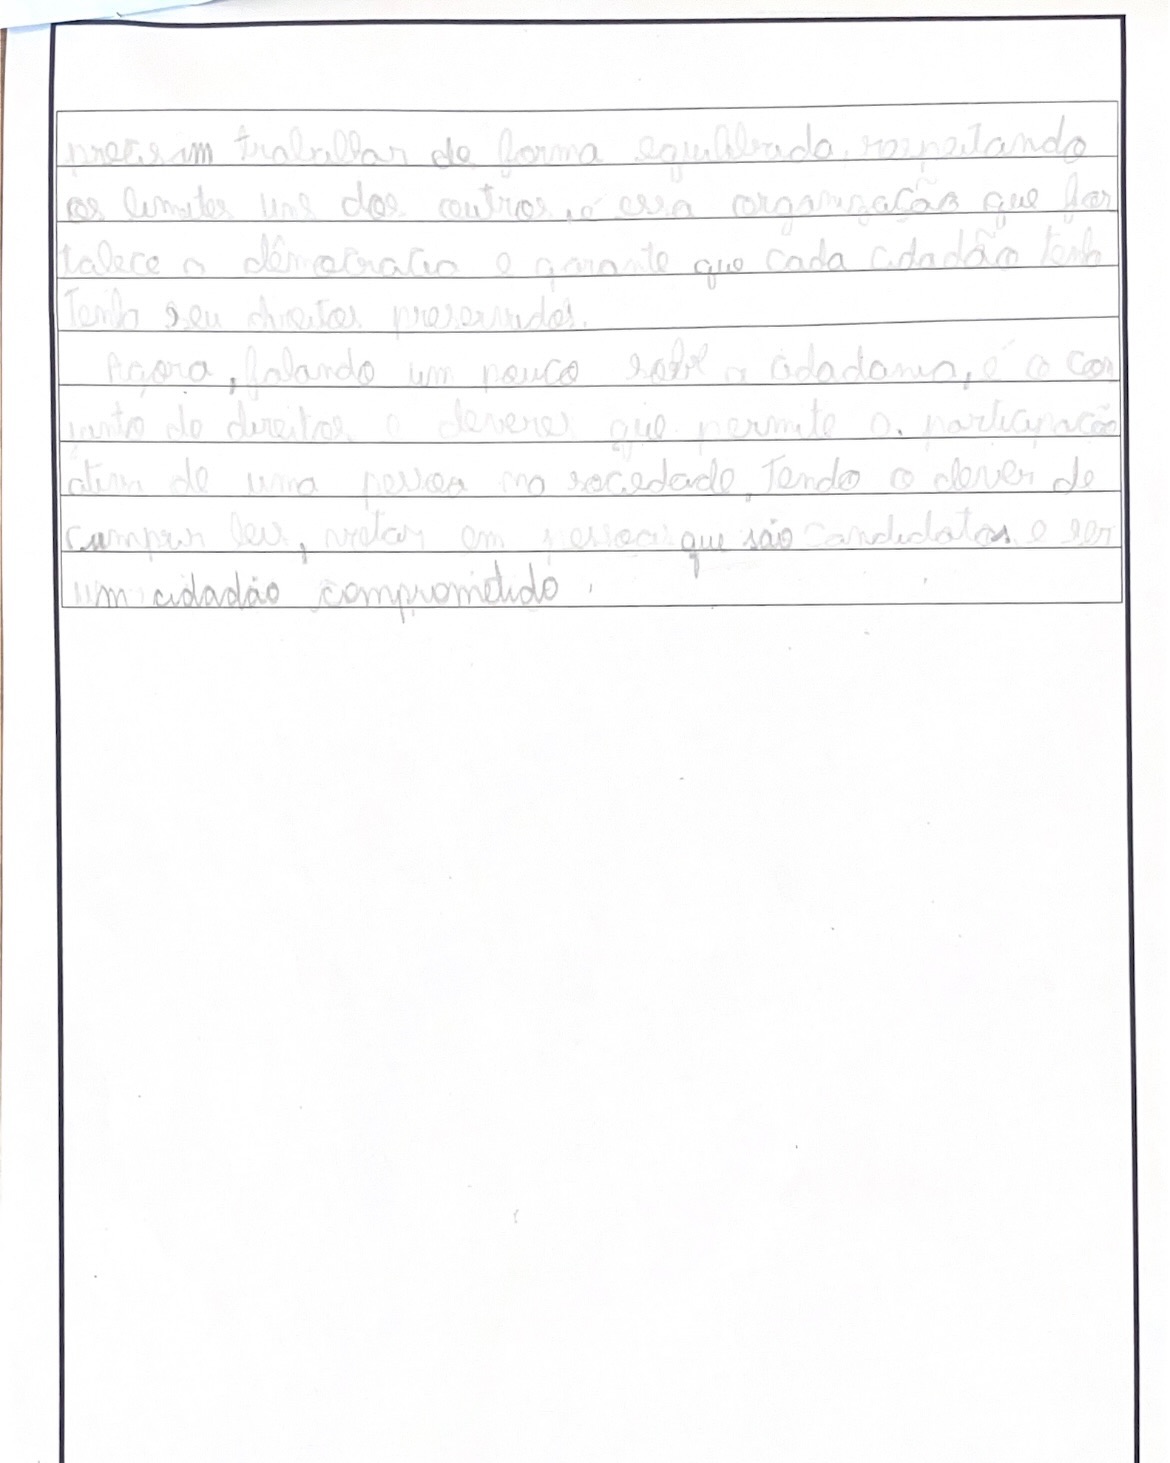 precisam trabalhar de forma equilibrada. respeitando
os limites uns dos outros, é essa organização que for
talece a dêmocracia e garante que cada cidadão tenh
tenha seu direitos preservados.
Agora, falando um pouco sobre a cidadania, é o con
junto de direitos e deveres que permite a participação
ativa de uma pessoa na sociedade, Tendo o dever de
cumprir leis, votar em pessoas que são candidatos e ser
um cidadão comprometido.